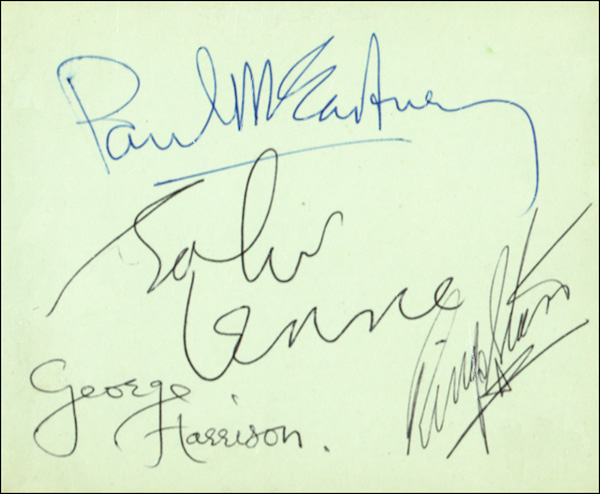 Paul McCartney
John
Lennon
George
Harrison.
Ringo Starr